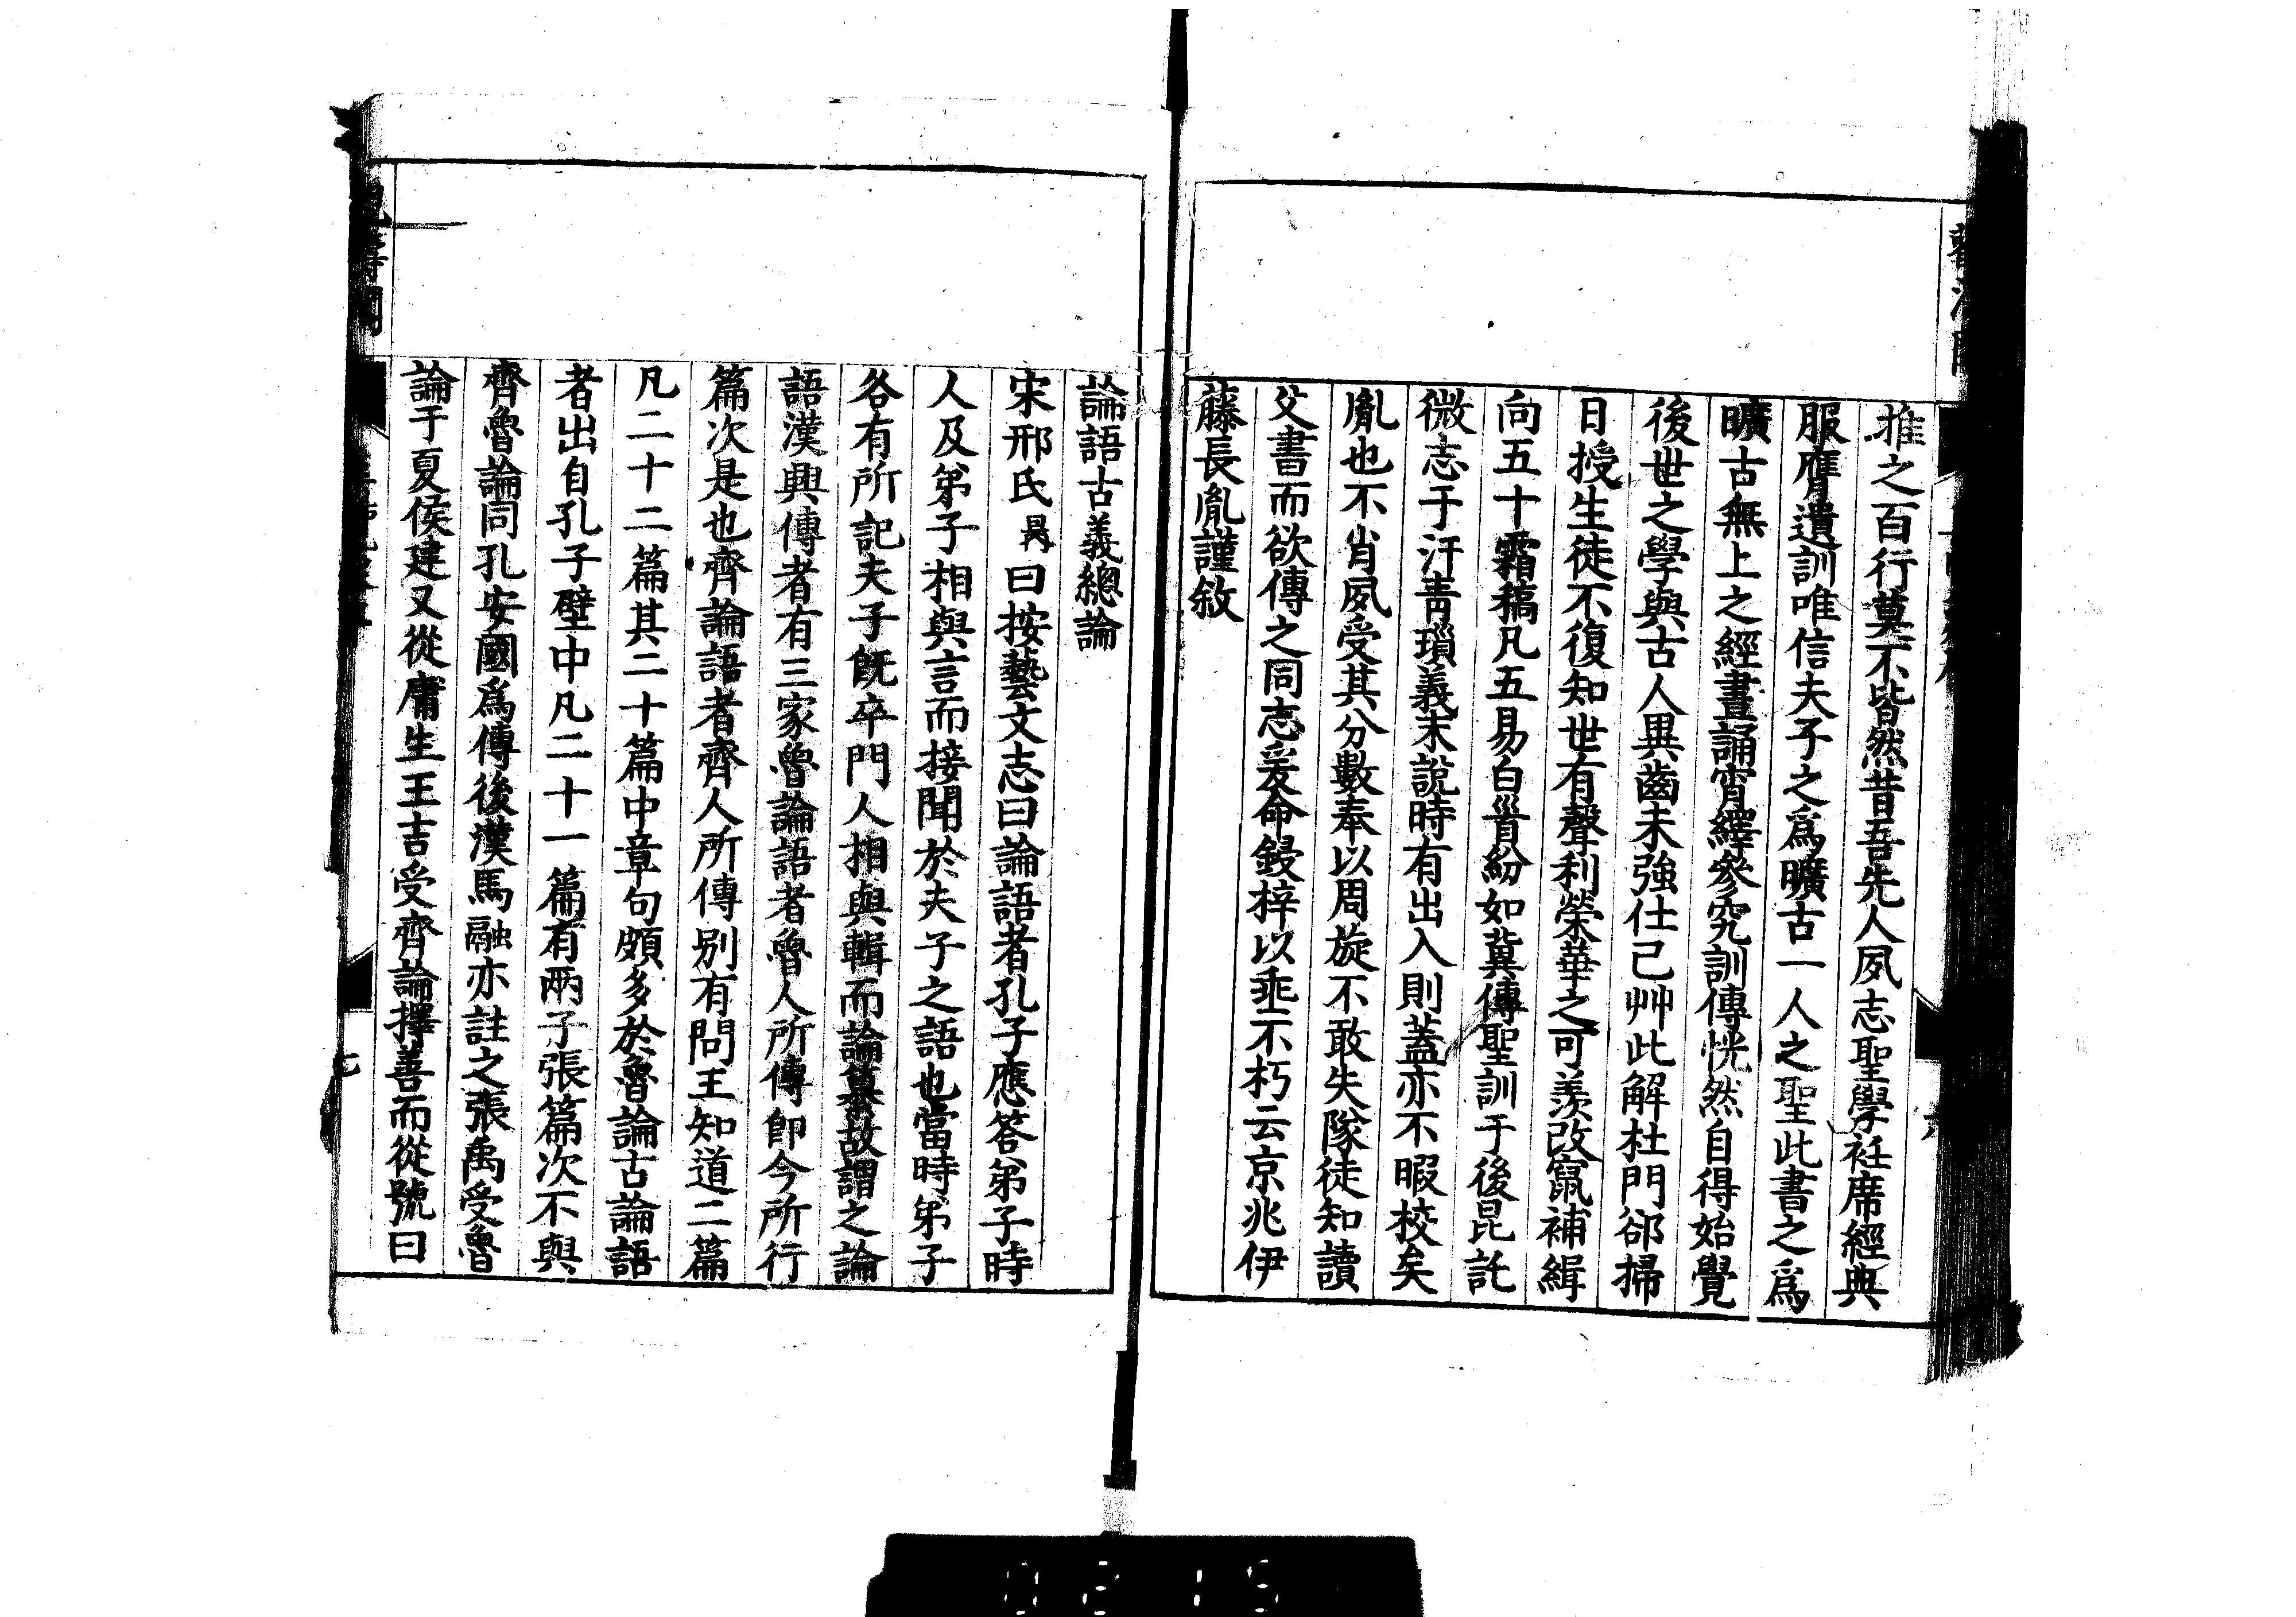 推之百行莫不皆然昔吾先人夙志聖學衽席經典
服膺遺訓唯信夫子之爲曠古一人之聖此書之爲
曠古無上之經晝誦宵繹參究訓傳恍然自得始覺
後世之學與古人異齒未強仕己艸此解杜門郤掃
日授生徒不復知世有聲利榮華之可羨改竄補緝
向五十霜稿凡五易白首紛如冀傳聖訓于後昆託
微志于汗青瑣義末說時有出入則蓋亦不暇校矣
胤也不肖夙受其分數奉以周旋不敢失隊徒知讀
父書而欲傳之同志爰命鋟梓以垂不朽云京兆伊
藤長胤謹敘
論語古義總論
宋邢氏昺曰按藝文志曰論語者孔子應答弟子時
人及弟子相與言而接聞於夫子之語也當時弟子
各有所記夫子旣卒門人相與輯而論纂故謂之論
語漢興傳者有三家魯論語者魯人所傳即今所行
篇次是也齊論語者齊人所傳別有問王知道二篇
凡二十二篇其二十篇中章句頗多於魯論古論語
者出自孔子壁中凡二十一篇有兩子張篇次不與
齊魯論同孔安國爲傳後漢馬融亦註之張禹受魯
論于夏侯建又從庸生王吉受齊論擇善而從號曰